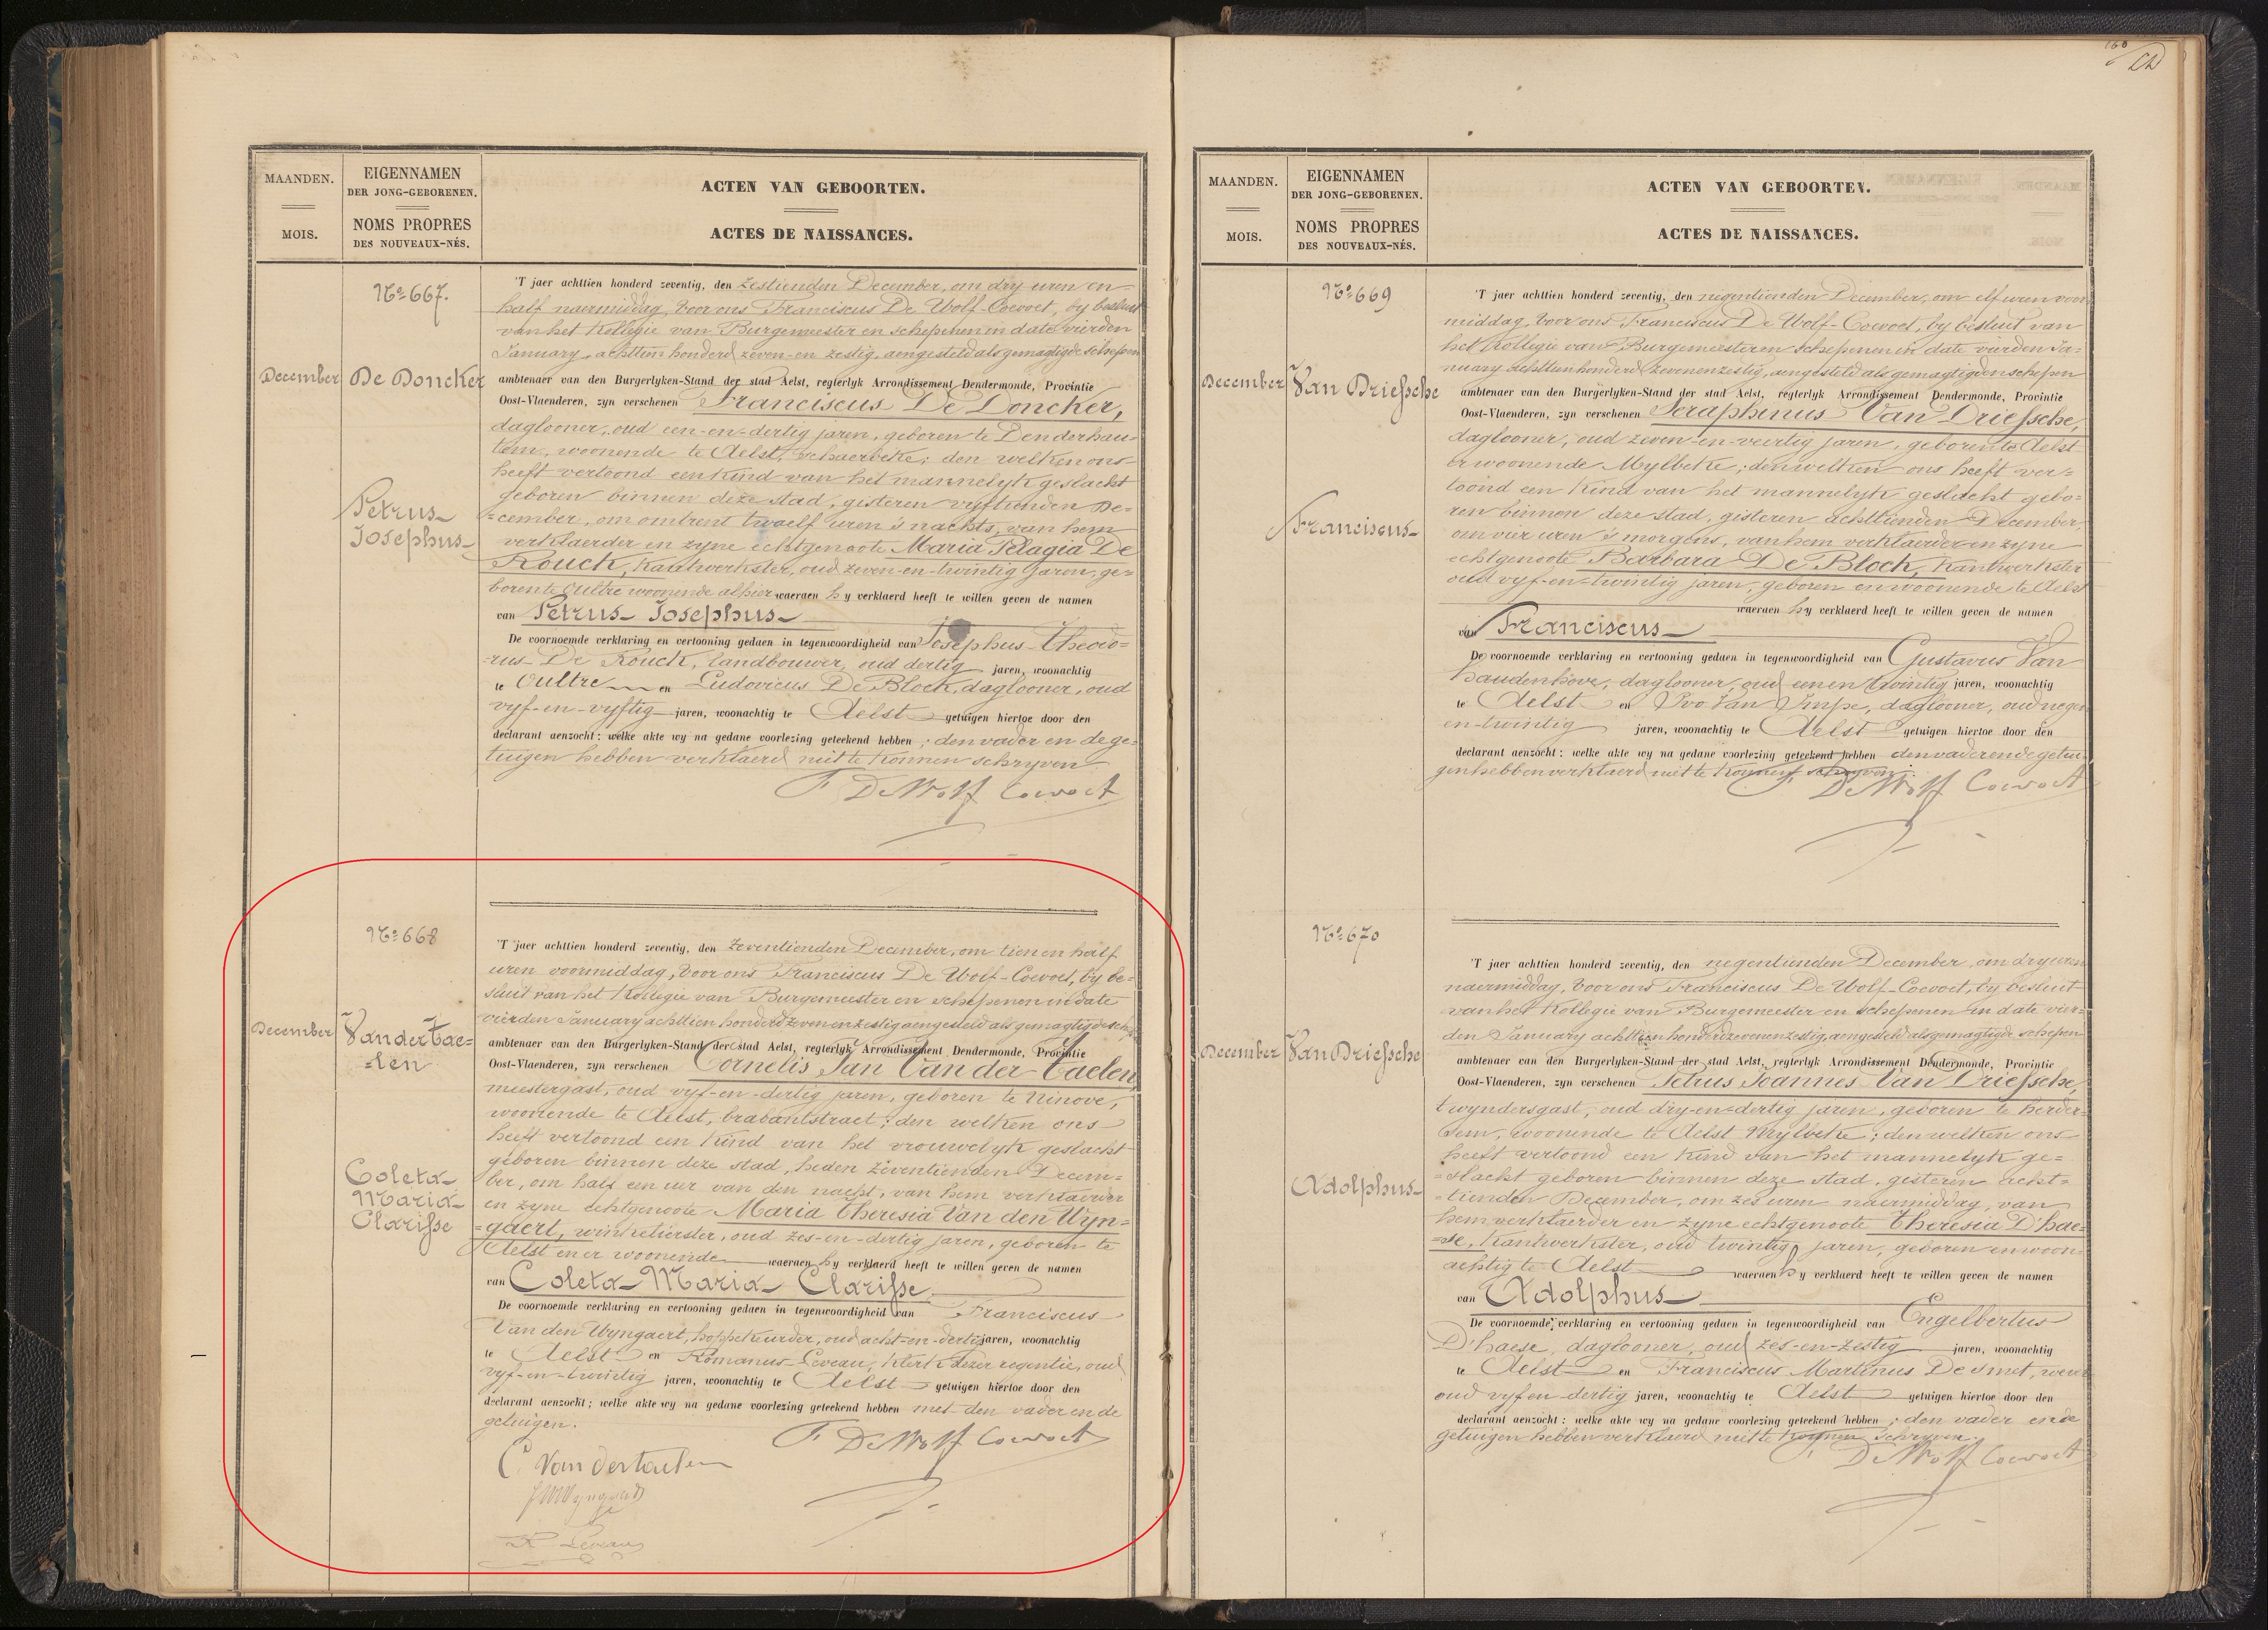 160
MAANDEN.
MOIS.
EIGENNAMEN
DER JONG-GEBORENEN.
NOMS PROPRES
DES NOUVEAUX-NÉS.
ACTEN VAN GEBOORTEN.
ACTES DE NAISSANCES.
No 667.
December
De Doncker
Petrus
Josephus
'T jaer achttien honderd zeventig, den zestienden December, om dry uren en
half naermiddag, voor ons Franciscus De Wolf-Coevoet, by besluit
van het Kollegie van Burgemeester en schepenen in date vierden
January achttien honderd zeven-en zestig, aengesteld als gemagtigde schepen
ambtenaer van den Burgerlyken-Stand der stad Aelst, regterlyk Arrondissement Dendermonde, Provintie
Oost-Vlaenderen, zyn verschenen Franciscus De Doncker,
daglooner, oud een-en-dertig jaren, geboren te Denderhau=
tem, woonende te Aelst, Schaerbeke; den welken ons
heeft vertoond een kind van het mannelyk geslacht
geboren binnen deze stad, gisteren vyftienden De=
=cember, om omtrent twaelf uren 's nachts, van hem
verklaerder en zyne echtgenoote Maria Pelagia De
Rouck, kantwerkster, oud zeven-en-twintig jaren, ge=
boren te Oultre woonende alhier waeraen hy verklaerd heeft te willen geven de namen
van Petrus Josephus
De voornoemde verklaring en vertooning gedaen in tegenwoordigheid van Josephus Theodo=
=rus De Rouck, landbouwer, oud dertig jaren, woonachtig
te Oultre en Ludovicus De Block, daglooner, oud
vyf-en-vyftig jaren, woonachtig te Aelst getuigen hiertoe door den
declarant aenzocht: welke akte wy na gedane voorlezing geteekend hebben; den vader en de ge=
tuigen hebben verklaerd niet te konnen schryven
F De Wolf Coevoet
No 668
December
Van der Tae=
=len
Coleta
Maria
Clarisse
'T jaer achttien honderd zeventig, den zeventienden December, om tien en half
uren voormiddag, voor ons Franciscus De Wolf-Coevoet, by be=
sluit van het Kollegie van Burgemeester en schepenen in date
vierden January achttien honderd zeven en zestig aengesteld als gemagtigde schepen
ambtenaer van den Burgerlyken-Stand der stad Aelst, regterlyk Arrondissement Dendermonde, Provintie
Oost-Vlaenderen, zyn verschenen Cornelis Jan Van der Taelen,
meestergast, oud vyf-en-dertig jaren, geboren te Ninove,
woonende te Aelst, brabantstraet; den welken ons
heeft vertoond een kind van het vrouwelyk geslacht
geboren binnen deze stad, heden zeventienden Decem=
ber, om half een uer van den nacht, van hem verklaerder
en zyne echtgenoote Maria Theresia Van den Wyn=
=gaert, winkelierster, oud zes-en-dertig jaren, geboren te
Aelst en er woonende waeraen hy verklaerd heeft te willen geven de namen
van Coleta Maria Clarisse
De voornoemde verklaring en vertooning gedaen in tegenwoordigheid van Franciscus
Van den Wyngaert, hoppekeurder, oud acht-en-dertig jaren, woonachtig
te Aelst en Romanus Leveau, klerk dezer regentie, oud
vyf-en-twintig jaren, woonachtig te Aelst getuigen hiertoe door den
declarant aenzocht; welke akte wy na gedane voorlezing geteekend hebben met den vader en de
getuigen.
F De Wolf Coevoet
C. Van dertaelen
R Leveau
MAANDEN.
MOIS.
EIGENNAMEN
DER JONG-GEBORENEN.
NOMS PROPRES
DES NOUVEAUX-NÉS.
ACTEN VAN GEBOORTEN.
ACTES DE NAISSANCES.
No 669
December
Van Driessche
Franciscus
'T jaer achttien honderd zeventig, den negentienden December, om elf uren voor
middag, voor ons Franciscus De Wolf-Coevoet, by besluit van
het Kollegie van Burgemeester en schepenen in date vierden Ja=
nuary achttien honderd zeven en zestig, aengesteld als gemagtigden schepen
ambtenaer van den Burgerlyken-Stand der stad Aelst, regterlyk Arrondissement Dendermonde, Provintie
Oost-Vlaenderen, zyn verschenen Seraphinus Van Driessche,
daglooner, oud zeven-en-veertig jaren, geboren te Aelst
er woonende Mylbeke; den welken ons heeft ver=
toond een kind van het mannelyk geslacht gebo=
ren binnen deze stad, gisteren achttienden December,
om vier uren 's morgens, van hem verklaerder en zyne
echtgenoote Barbara De Block, kantwerkster
oud vyf-en-twintig jaren, geboren en woonende te Aelst
waeraen hy verklaerd heeft te willen geven de namen
van Franciscus
De voornoemde verklaring en vertooning gedaen in tegenwoordigheid van Gustavus Van
Haudenhove, daglooner, oud een en twintig jaren, woonachtig
te Aelst en Ivo Van Impe, daglooner, oud negen
en-twintig jaren, woonachtig te Aelst getuigen hiertoe door den
declarant aenzocht: welke akte wy na gedane voorlezing geteekend hebben den vader en de getui
gen hebben verklaerd niet te konnen schryven.
F De Wolf Coevoet
No 670
December
Van Driessche
Adolphus
'T jaer achttien honderd zeventig, den negentienden December, om dry uren
naermiddag, voor ons Franciscus De Wolf-Coevoet, by besluit
van het Kollegie van Burgemeester en schepenen in date vier=
den January achttien honderd zeven en zestig, aengesteld als gemagtigde schepen
ambtenaer van den Burgerlyken-Stand der stad Aelst, regterlyk Arrondissement Dendermonde, Provintie
Oost-Vlaenderen, zyn verschenen Petrus Joannes Van Driessche,
twyndersgast, oud dry-en-dertig jaren, geboren te Herder=
sem, woonende te Aelst Mylbeke; den welken ons
heeft vertoond een kind van het mannelyk ge=
=slacht geboren binnen deze stad, gisteren acht=
=tienden December, om zes uren naermiddag, van
hem verklaerder en zyne echtgenoote Theresia D'hae=
=se, kantwerkster, oud twintig jaren, geboren en woon=
achtig te Aelst waeraen hy verklaerd heeft te willen geven de namen
van Adolphus
De voornoemde verklaring en vertooning gedaen in tegenwoordigheid van Engelbertus
D'haese, daglooner, oud zes-en-zestig jaren, woonachtig
te Aelst en Franciscus Martinus De Smet, wever
oud vyf en dertig jaren, woonachtig te Aelst getuigen hiertoe door den
declarant aenzocht: welke akte wy na gedane voorlezing geteekend hebben; den vader en de
getuigen hebben verklaerd niet te konnen schryven.
F De Wolf Coevoet